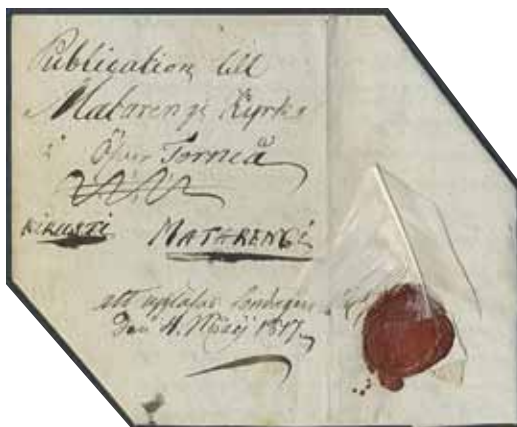 Publication till
Matarengi Kyrka
i Öfver Torneå
KIRUSTI MATARENGI
att uppläsas Söndagen
Den 4. Maij 1817